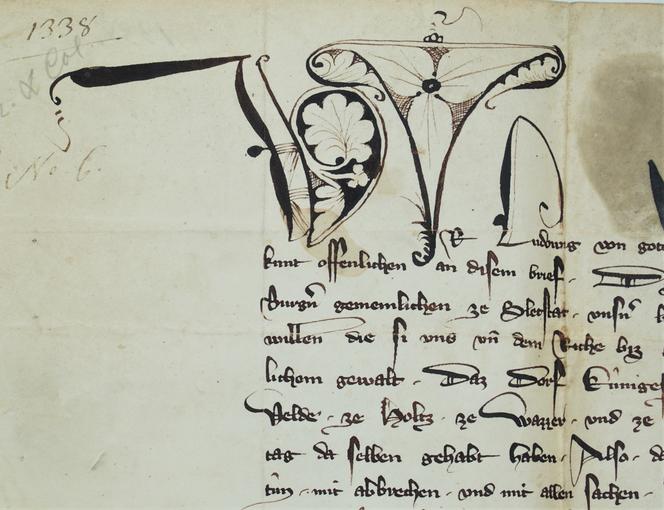 1338
& Col
No. 6.
WIR Ludowig von gote
kunt offenlichen an disem brief.
Burgern gemeinlichen ze Sletstat. unsern
willen die si uns vnd dem Riche biz
lichem gewalt. Daz Dorf Küniges
Velde. ze Holtz. ze Wazzer. und ze
tag da selben gehabt haben. Also. da
tün. mit abbrechen. und mit allen sachen.